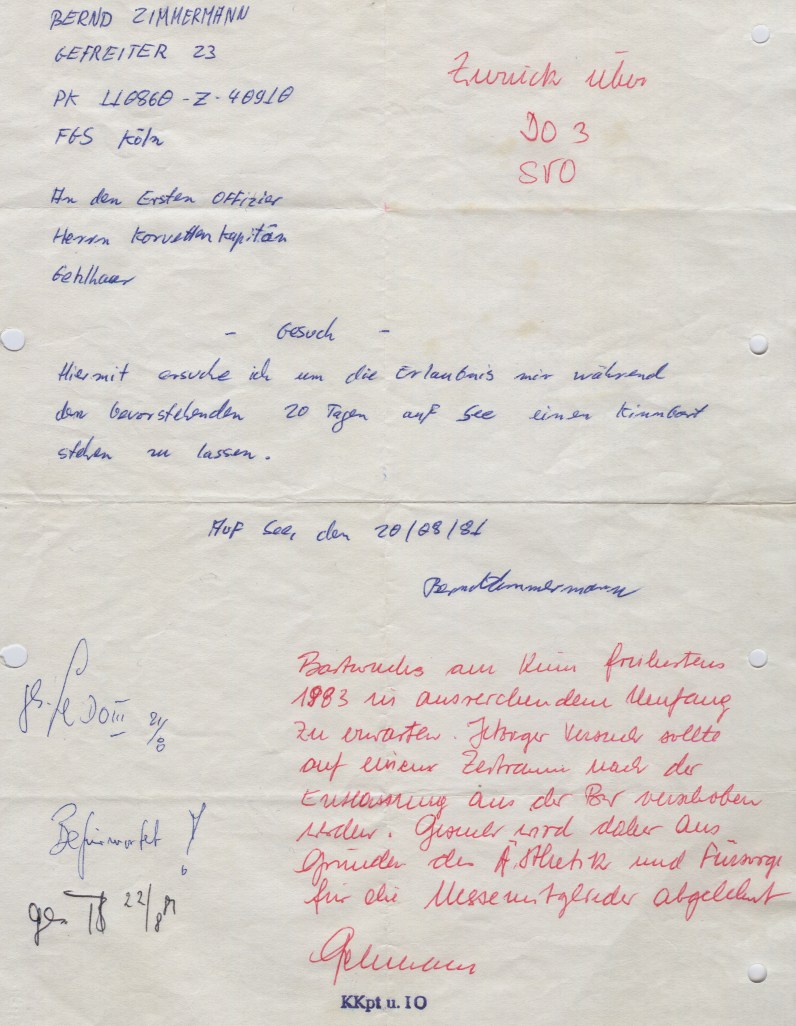 BERND ZIMMERMANN
GEFREITER 23
PK 110860-Z-40910
FGS Köln
Zurück über
DO 3
SVO
An den Ersten Offizier
Herrn Korvettenkapitän
Gehlhaar
- Gesuch -
Hiermit ersuche ich um die Erlaubnis mir während
den bevorstehenden 20 Tagen auf See einen Kinnbart
stehen zu lassen.
Auf See, den 20/08/81
Bernd Zimmermann
Bartwuchs am Kinn frühestens
1983 in ausreichendem Umfang
zu erwarten. Jetziger Versuch sollte
auf einen Zeitraum nach der
Entlassung aus der Bw verschoben
werden. Gesuch wird daher aus
Gründen der Ästhetik und Fürsorge
für die Messemitglieder abgelehnt
DO III 21/8
Befürwortet!
ges. 22/8
KKpt u. IO